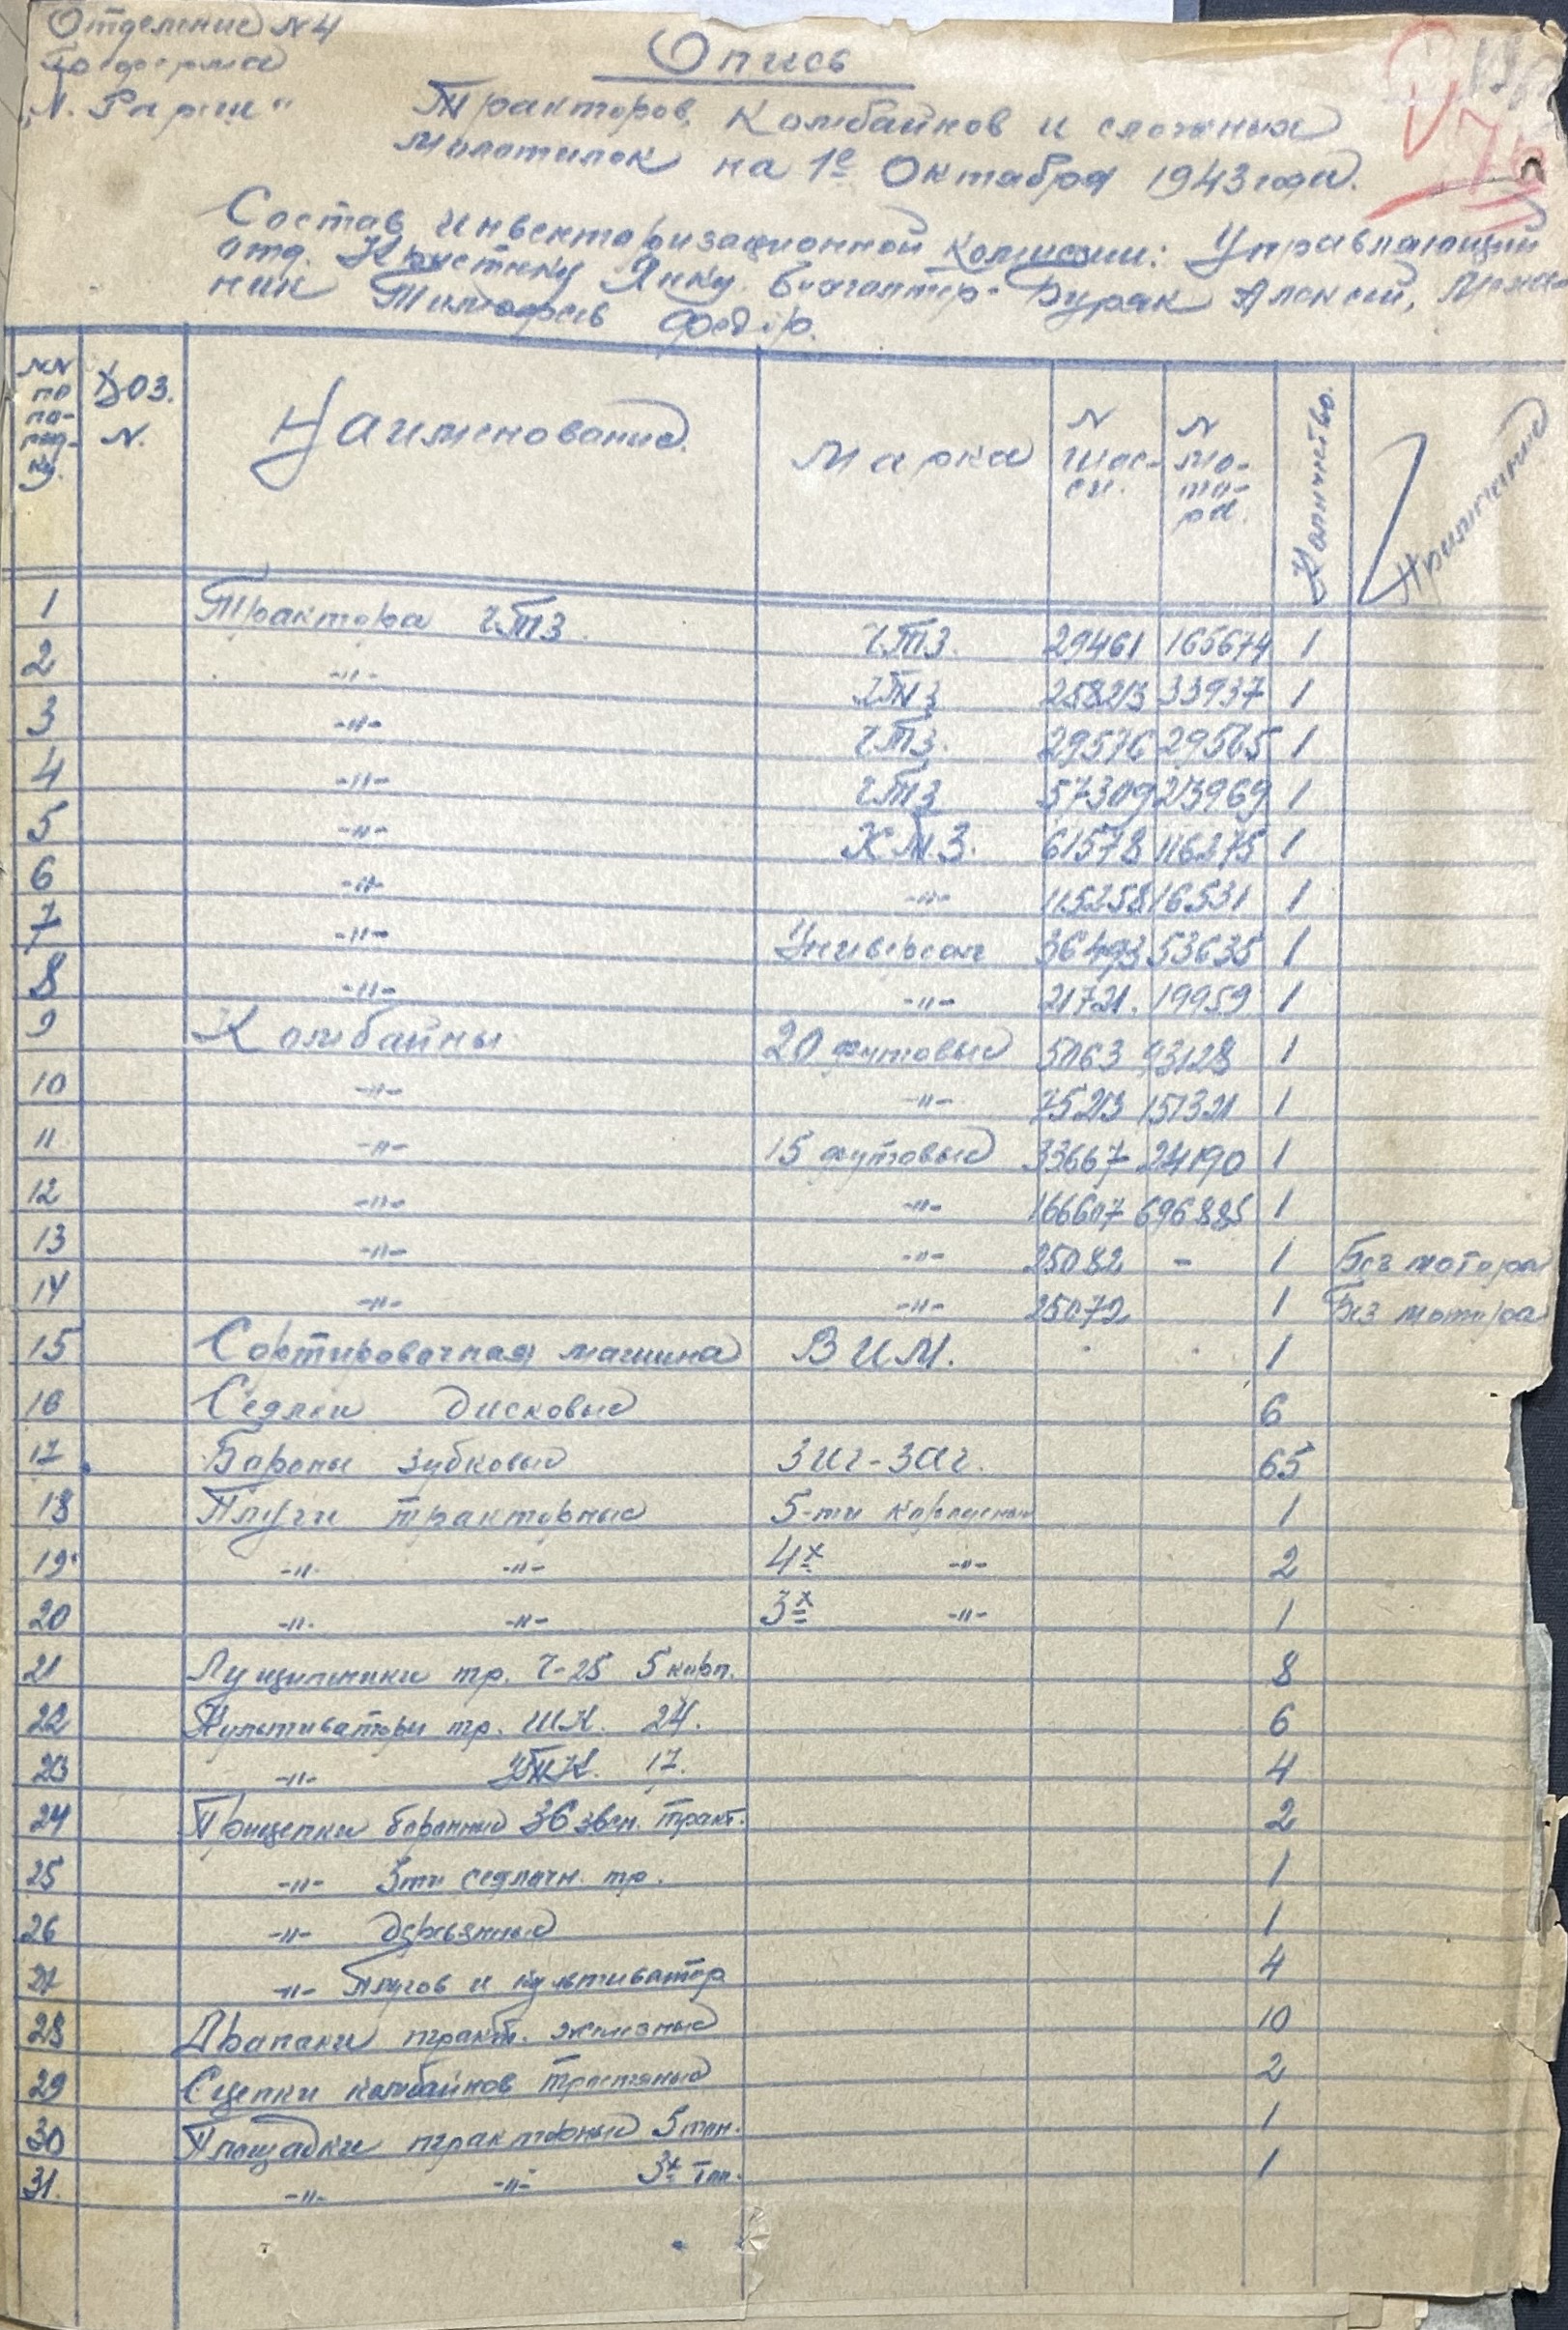 Отделение N4
Госферма
Опись
Тракторов, Комбайнов и сложных
молотилок на 1е Октября 1943 года.
Состав инвенторизационной комиссии: Управляющий
отд. Кристику Янку. Бухгалтер- Буряк Алексей,
Тимофеев Федор.
NN по по-ряд-ку. ДОЗ. N. Наименование. Марка N шас-си. N мо-то-ра. Количество. Примечание
1 Трактора ЧТЗ. ЧТЗ. 29461 165674 1
2 -"- ЧТЗ 258213 33937 1
3 -"- ЧТЗ. 29576 29565 1
4 -"- ЧТЗ 57309 213969 1
5 -"- 61578 116275 1
6 -"- -"- 115258 16531 1
7 -"- Универсал 36493 53635 1
8 -"- -"- 21721. 19959 1
9 Комбайны 20 футовые 5063 93128 1
10 -"- -"- 75213 151321 1
11 -"- 15 футовые 33667 24190 1
12 -"- -"- 166607 696885 1
13 -"- -"- 25082 - 1 Без мотора
14 -"- -"- 25072 1 Без мотора
15 Сортировочная машина ВИМ. 1
16 Сеялки дисковые 6
17 Бароны зубковые Зиг-Заг. 65
18 Плуги тракторные 5-ти корпусные 1
19 -"- -"- 4х -"- 2
20 -"- -"- 3х -"- 1
21 Лущильники тр. Ч-25 5 корп. 8
22 Культиваторы тр. ШК. 24. 6
23 -"- УТК. 17. 4
24 Прицепки баронные 36 звен. тракт. 2
25 -"- 3ти сеялочн. тр. 1
26 -"- деревянные 1
27 -"- Плугов и культиватор 4
28 Драпаки тракт. железные 10
29 Сцепки комбайнов 2
30 Площадки тракторные 5 тон. 1
31. -"- -"- 3х тон. 1